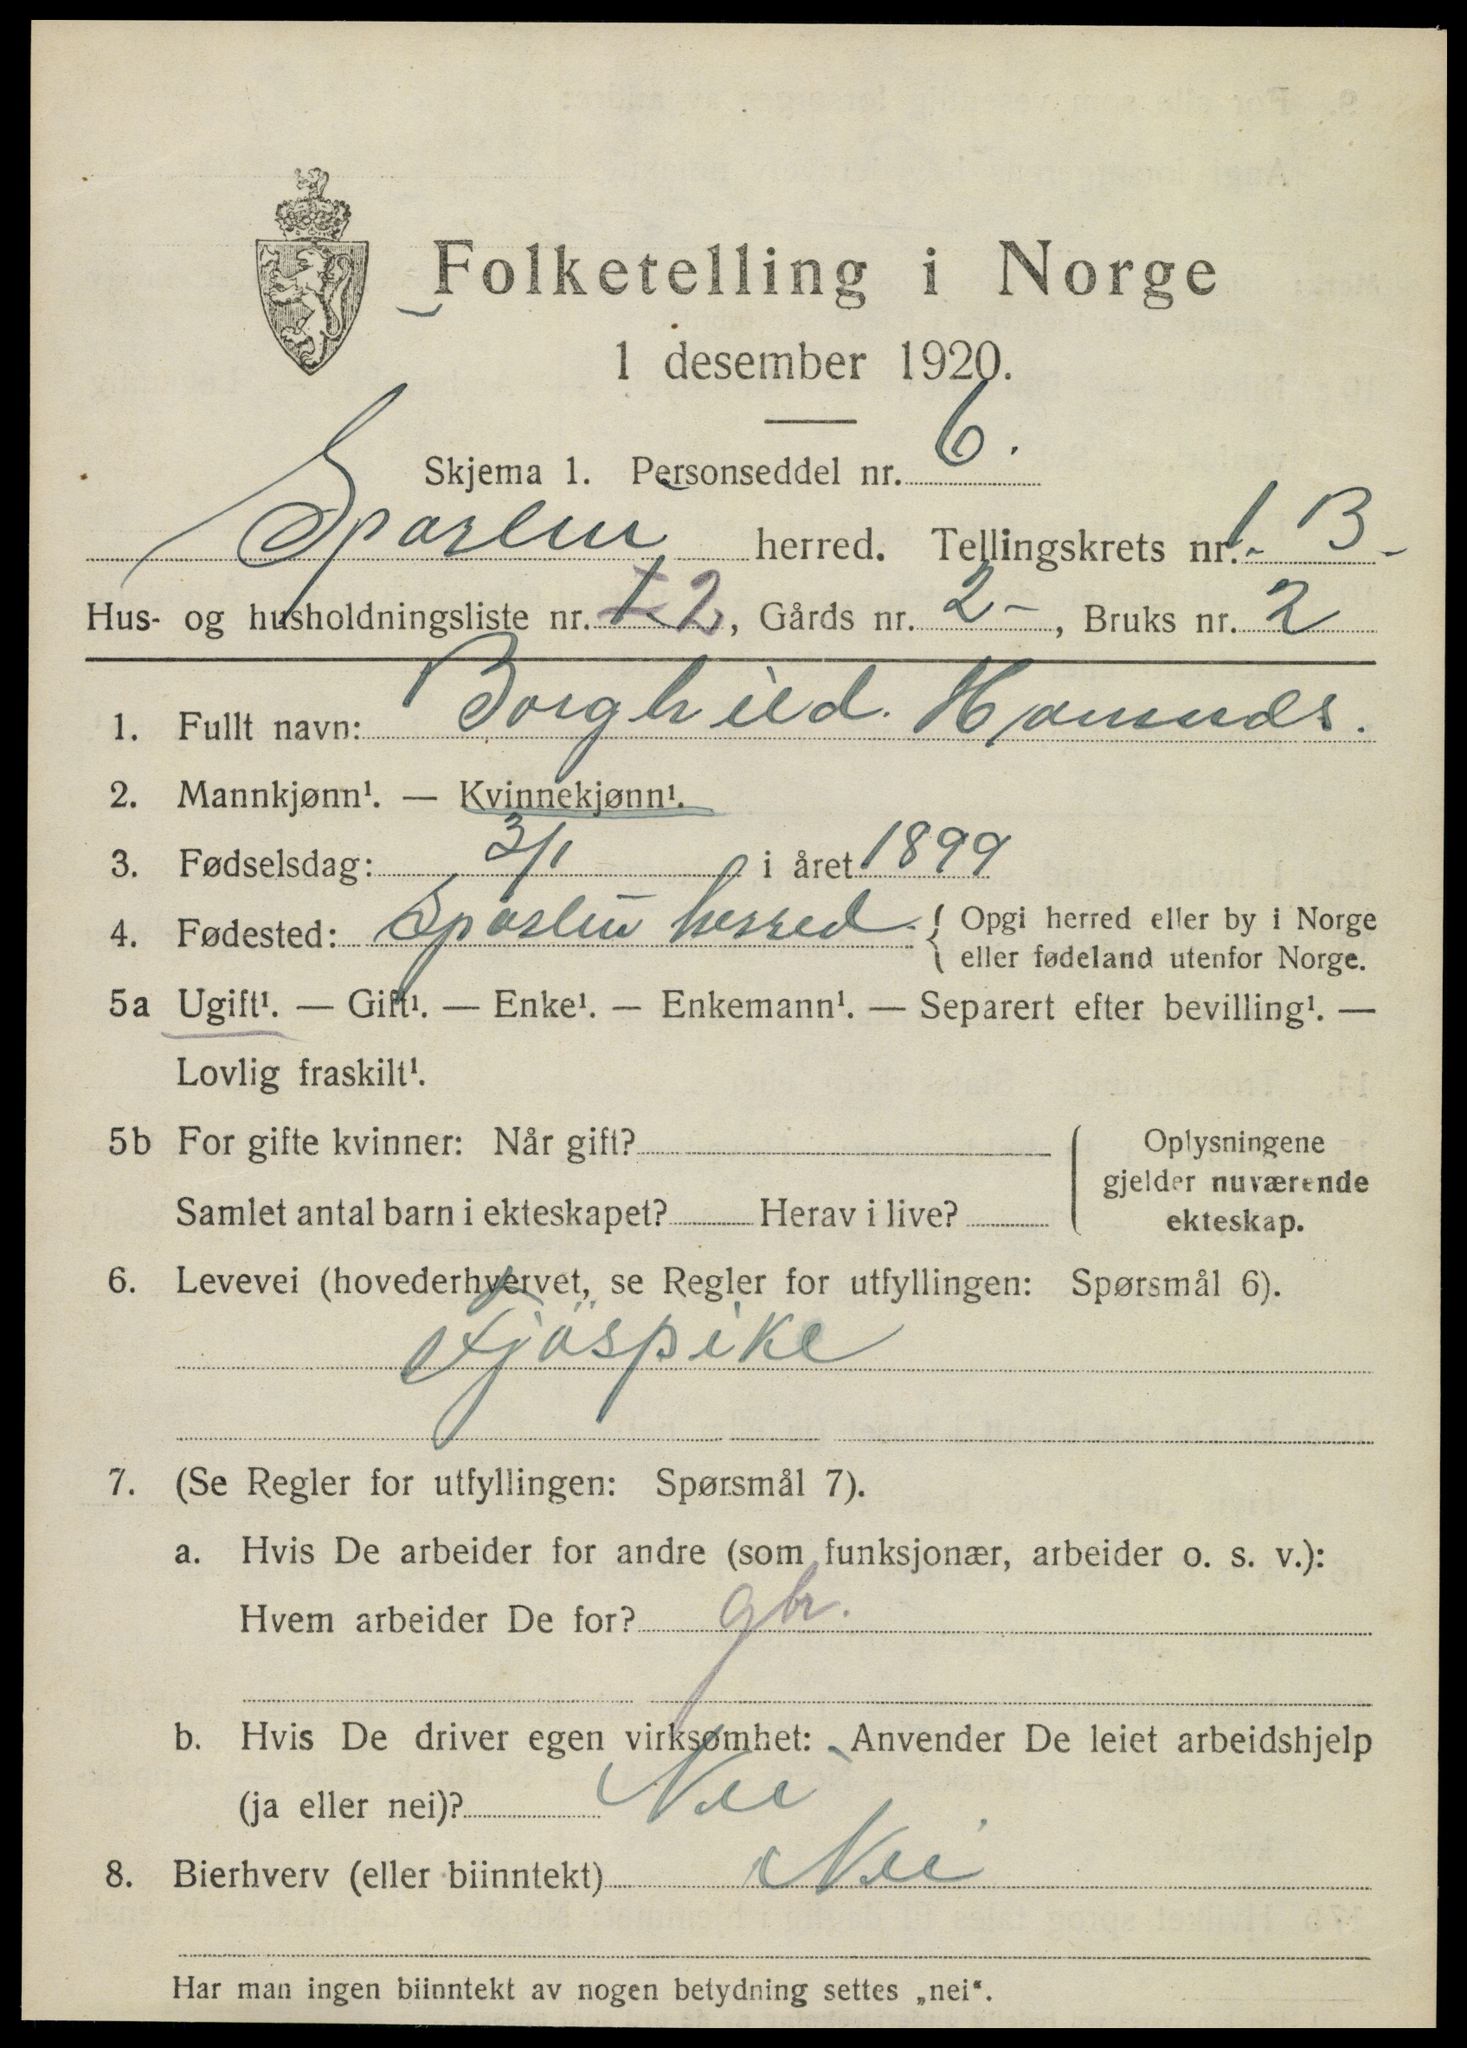 Folketelling i Norge
1 desember 1920.
Skjema 1. Personseddel nr. 6.
herred. Tellingskrets nr. 1. B-
Hus- og husholdningsliste nr. 2, Gårds nr. 2-, Bruks nr. 2
1. Fullt navn: Borghild
2. Mannkjønn¹. — Kvinnekjønn¹.
3. Fødselsdag: 3/1 i året 1899
4. Fødested: herred. { Opgi herred eller by i Norge
eller fødeland utenfor Norge.
5a Ugift¹. — Gift¹. — Enke¹. — Enkemann¹. — Separert efter bevilling¹. —
Lovlig fraskilt¹.
5b For gifte kvinner: Når gift?
Samlet antal barn i ekteskapet? Herav i live?
Oplysningene
gjelder nuværende
ekteskap.
6. Levevei (hovederhvervet, se Regler for utfyllingen: Spørsmål 6).
Fjöspike
7. (Se Regler for utfyllingen: Spørsmål 7).
a. Hvis De arbeider for andre (som funksjonær, arbeider o. s. v.):
Hvem arbeider De for? gbr.
b. Hvis De driver egen virksomhet: Anvender De leiet arbeidshjelp
(ja eller nei)? Nei
8. Bierhverv (eller biinntekt) Nei
Har man ingen biinntekt av nogen betydning settes „nei“.